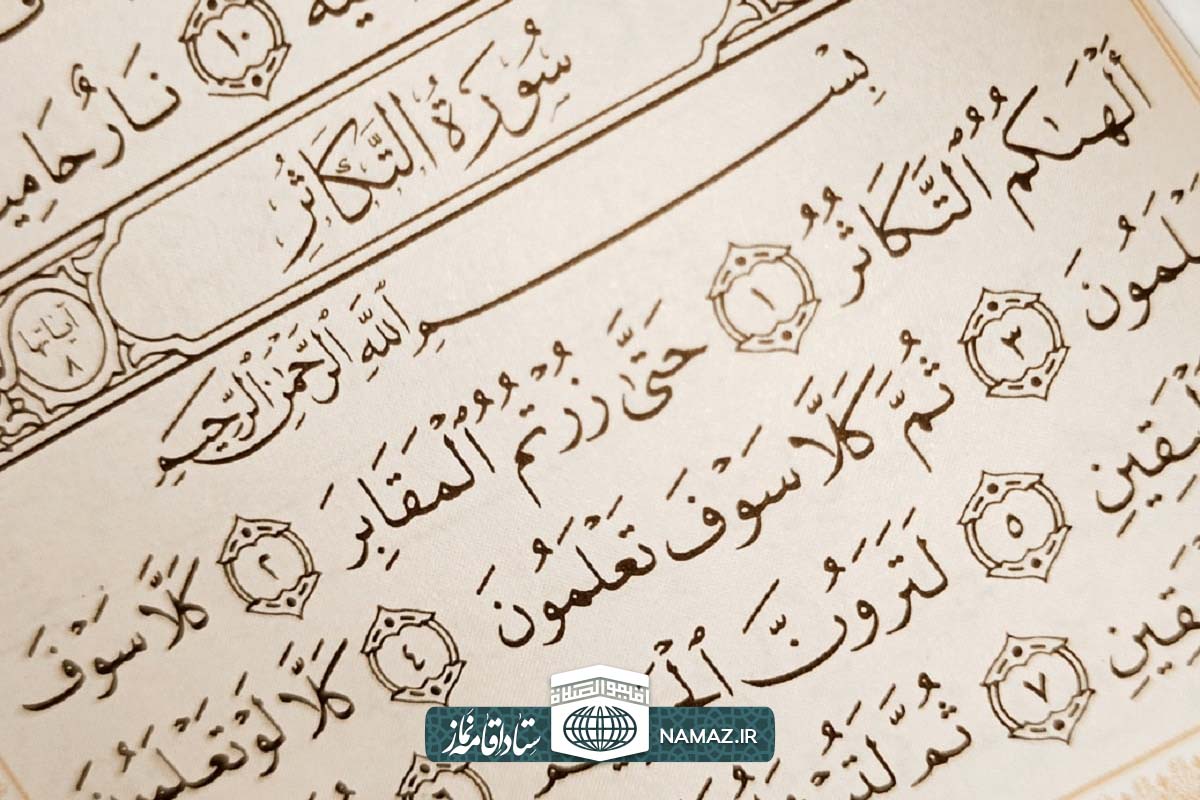 نَارٌ حَامِيَ ١٠
سُورَةُ التَّكَاثُرِ
آياتها ٨
بِسْمِ ٱللَّهِ ٱلرَّحْمَٰنِ ٱلرَّحِيمِ
أَلْهَىٰكُمُ ٱلتَّكَاثُرُ ١ حَتَّىٰ زُرْتُمُ ٱلْمَقَابِرَ ٢ كَلَّا سَوْفَ
عْلَمُونَ ٣ ثُمَّ كَلَّا سَوْفَ تَعْلَمُونَ ٤ كَلَّا لَوْ تَعْلَمُونَ
ٱلْيَقِينِ ٥ لَتَرَوُنَّ
لْيَقِينِ ٧ ثُمَّ
اقیموا الصلاة
ستاد اقامه نماز
NAMAZ.IR